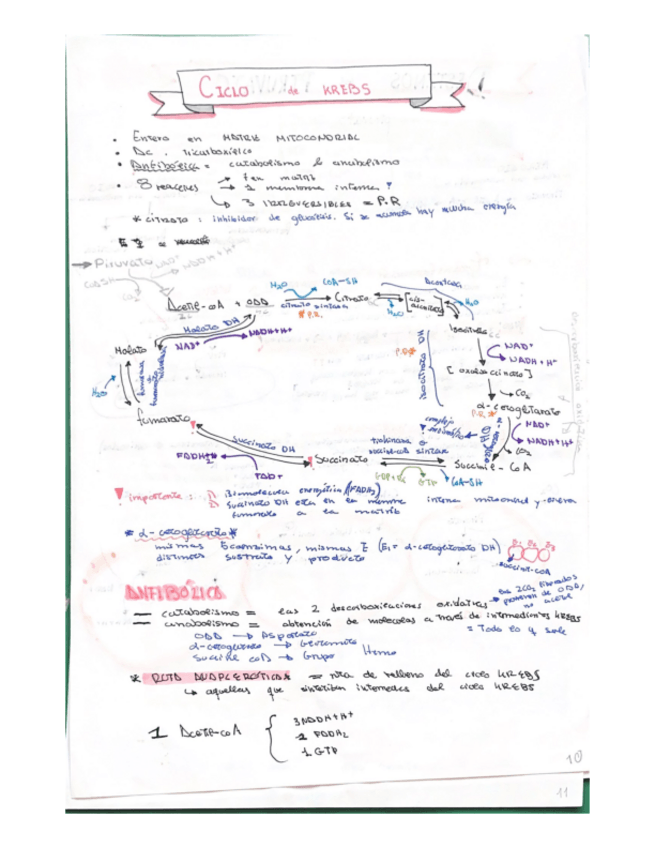 CICLO de KREBS
• Entero en MATRIZ MITOCONDRIAL
• Ac. Tricarboxílico
• Anfibólica = catabolismo & anabolismo
• 8 reacciones → 7 en matriz
→ 1 membrana interna
↳ 3 IRREVERSIBLES = P.R
* citrato: inhibidor de glucólisis. Si se acumula hay mucha energía
→ Piruvato
NAD+
NADH+H+
CoASH
CO2
H2O
CoA-SH
Acetil-coA + OAA
citrato sintasa
* P.R.
Citrato
H2O
[cis-aconitato]
Aconitasa
H2O
Isocitrato
Malato DH
NAD+
NADH+H+
Malato
H2O
fumarasa
fumarato
isocitrato DH
P.R*
NAD+
NADH+H+
[oxalosuccinato]
CO2
α-cetoglutarato
P.R.*
NAD+
NADH+H+
CO2
Succinato DH
FADH2
FAD+
Succinato
succinil-coA sintasa
GTP
CoA-SH
Succinil-CoA
importante:
Biomolécula energética (FADH2)
succinato DH está en la
interna mitocondrial y
fumarato a la matriz
* α-cetoglutarato *
mismas 5 coenzimas, mismas E (E1 = α-cetoglutarato DH)
E1 E2 E3
distintos sustrato y producto
succinil-coA
ANFIBÓLICO
— catabolismo = las 2 descarboxilaciones oxidativas
→ los 2CO2 liberados provienen de OAA, no acetil
— anabolismo = obtención de moléculas a través de intermediarios KREBS
= Todo lo q sale
OAA → Aspartato
α-cetoglutarato → Glutamato
Succinil coA → Grupo Hemo
* RUTA ANAPLERÓTICA = ruta de relleno del ciclo KREBS
↳ aquellas que sintetizan intermedios del ciclo KREBS
1 Acetil-coA { 3NADH+H+
1 FADH2
1 GTP
10
11